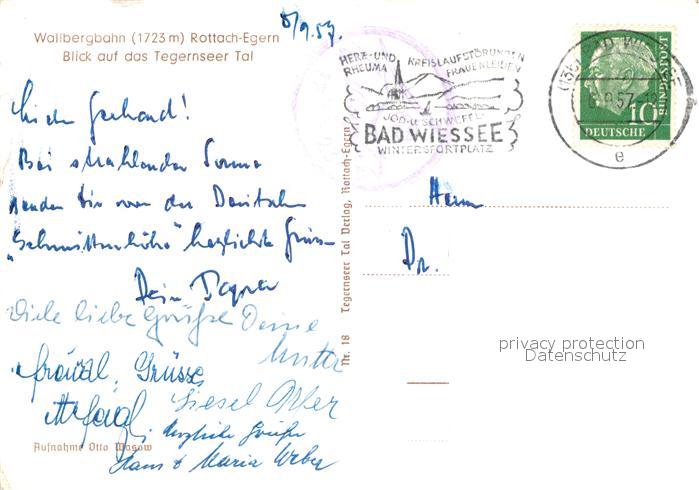 Wallbergbahn (1723 m) Rottach-Egern
Blick auf das Tegernseer Tal
8/9.57.
Lieber Gerhard!
Bei strahlender Sonne
senden Dir von der Deutschen
"Schmittenhöhe" herzlichste Grüsse
Dein
Viele liebe Grüße Deine
Mutter
Grüsse
Liesel
herzliche Grüße
Hans & Maria Weber
Aufnahme Otto Wasow
Nr. 18 Tegernseer Tal Verlag, Rottach-Egern
HERZ- UND KREISLAUFSTÖRUNGEN
RHEUMA FRAUENLEIDEN
JOD-u. SCHWEFEL-
BAD WIESSEE
WINTERSPORTPLATZ
BAD WIESSEE
57
e
10
DEUTSCHE
BUNDESPOST
Herrn
Dr.
privacy protection
Datenschutz